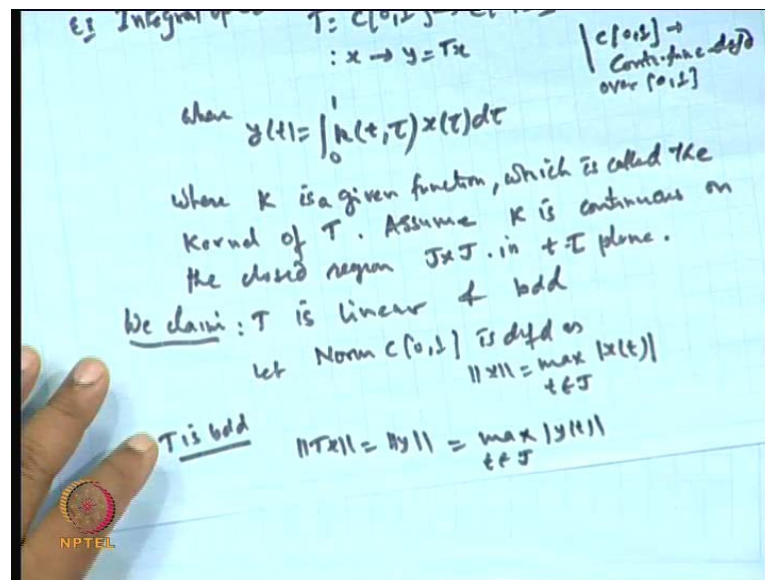 Ex Integral op T: C[0,1]
: x → y = Tx
| C[0,1] →
Conti. func defd
over [0,1]
where y(t) = ∫₀¹ k(t,τ) x(τ) dτ
where K is a given function, which is called the
Kernel of T. Assume K is continuous on
the closed region J×J. in t-τ plane.
We claim: T is linear & bdd
let Norm C[0,1] is defd as
||x|| = max |x(t)|
t∈J
T is bdd ||Tx|| = ||y|| = max |y(t)|
t∈J
NPTEL